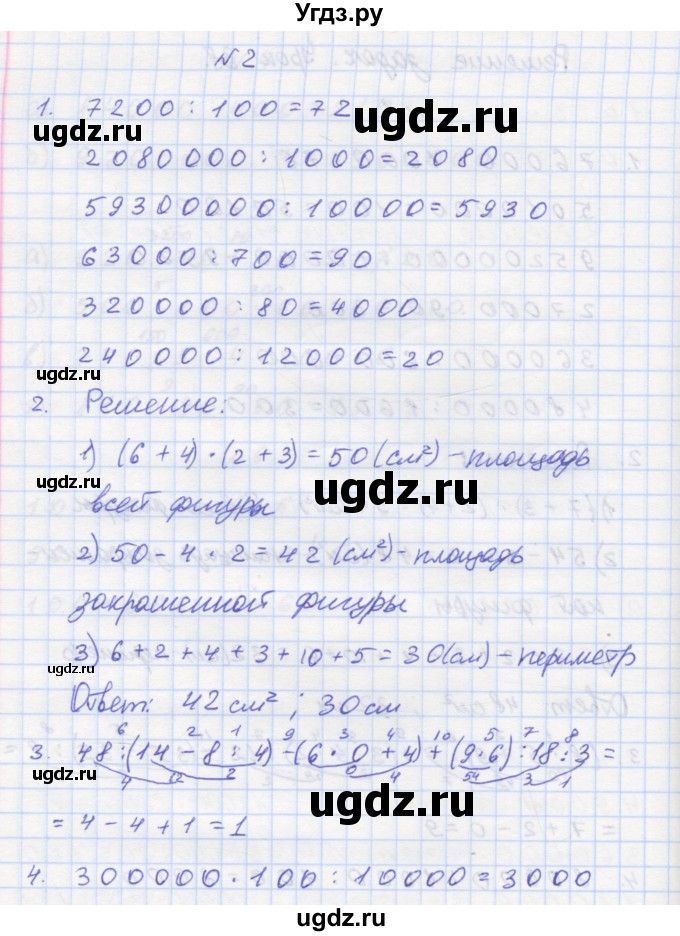 Угдз.ру
№2
1. 7200 : 100 = 72
ugdz.ru
ugdz.ru
2080000 : 1000 = 2080
59300000 : 10000 = 5930
63000 : 700 = 90
320000 : 80 = 4000
240000 : 12000 = 20
ugdz.ru
ugdz.ru
2. Решение.
1) (6 + 4) · (2 + 3) = 50 (см²) - площадь
ugdz.ru
ugdz.ru
всей фигуры
2) 50 - 4 · 2 = 42 (см²) - площадь
закрашенной фигуры
ugdz.ru
3) 6 + 2 + 4 + 3 + 10 + 5 = 30 (см) - периметр
ugdz.ru
Ответ: 42 см²; 30 см
6 2 1 9 3 4 10 5 7 8
3. 48 : (14 - 8 : 4) - (6 · 0 + 4) + (9 · 6) : 18 : 3 =
4 12 2 0 4 54 3 1
ugdz.ru
= 4 - 4 + 1 = 1
ugdz.ru
4. 300000 · 100 : 10000 = 3000
ugdz.ru
ugdz.ru